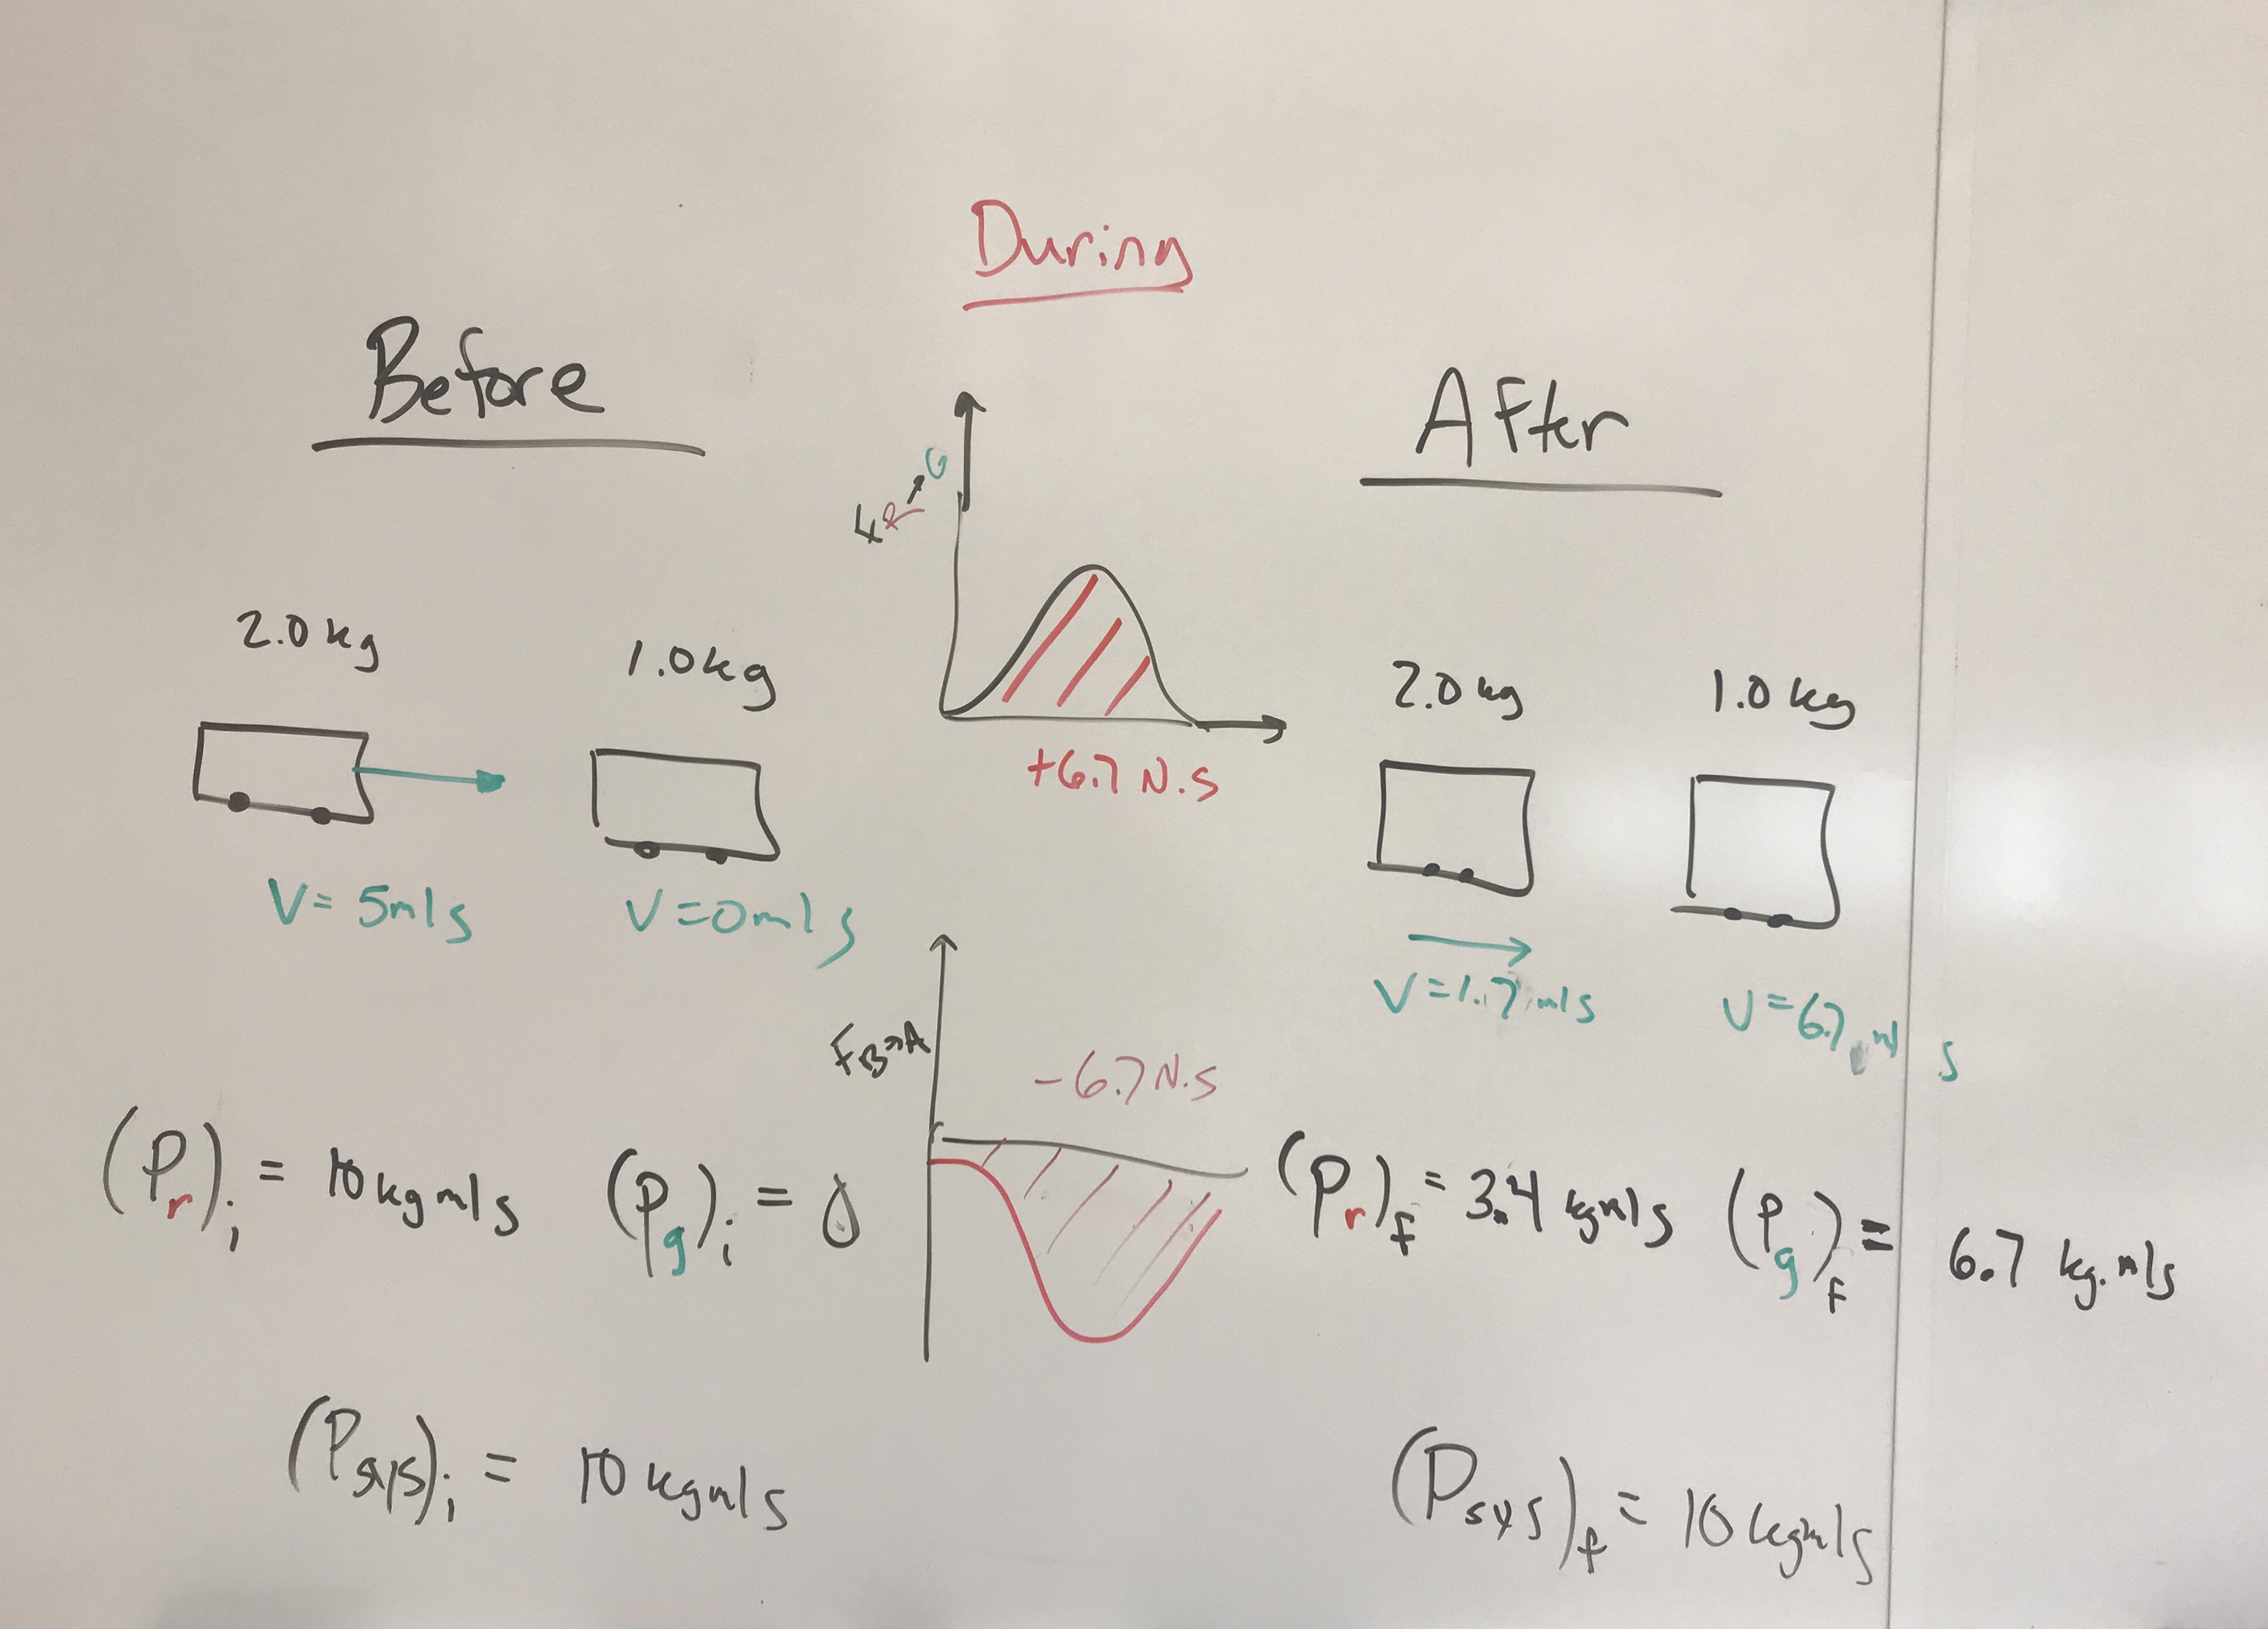 During
Before
After
F R→G
2.0 kg
1.0 kg
+6.7 N.s
2.0 kg
1.0 kg
V= 5m/s
V=0m/s
V=1.7 m/s
V=6.7 m/s
F B→A
-6.7 N.s
(Pr)i = 10 kgm/s
(Pg)i = 0
(Pr)f = 3.4 kgm/s
(Pg)f = 6.7 kg.m/s
(Psys)i = 10 kgm/s
(Psys)f = 10 kgm/s